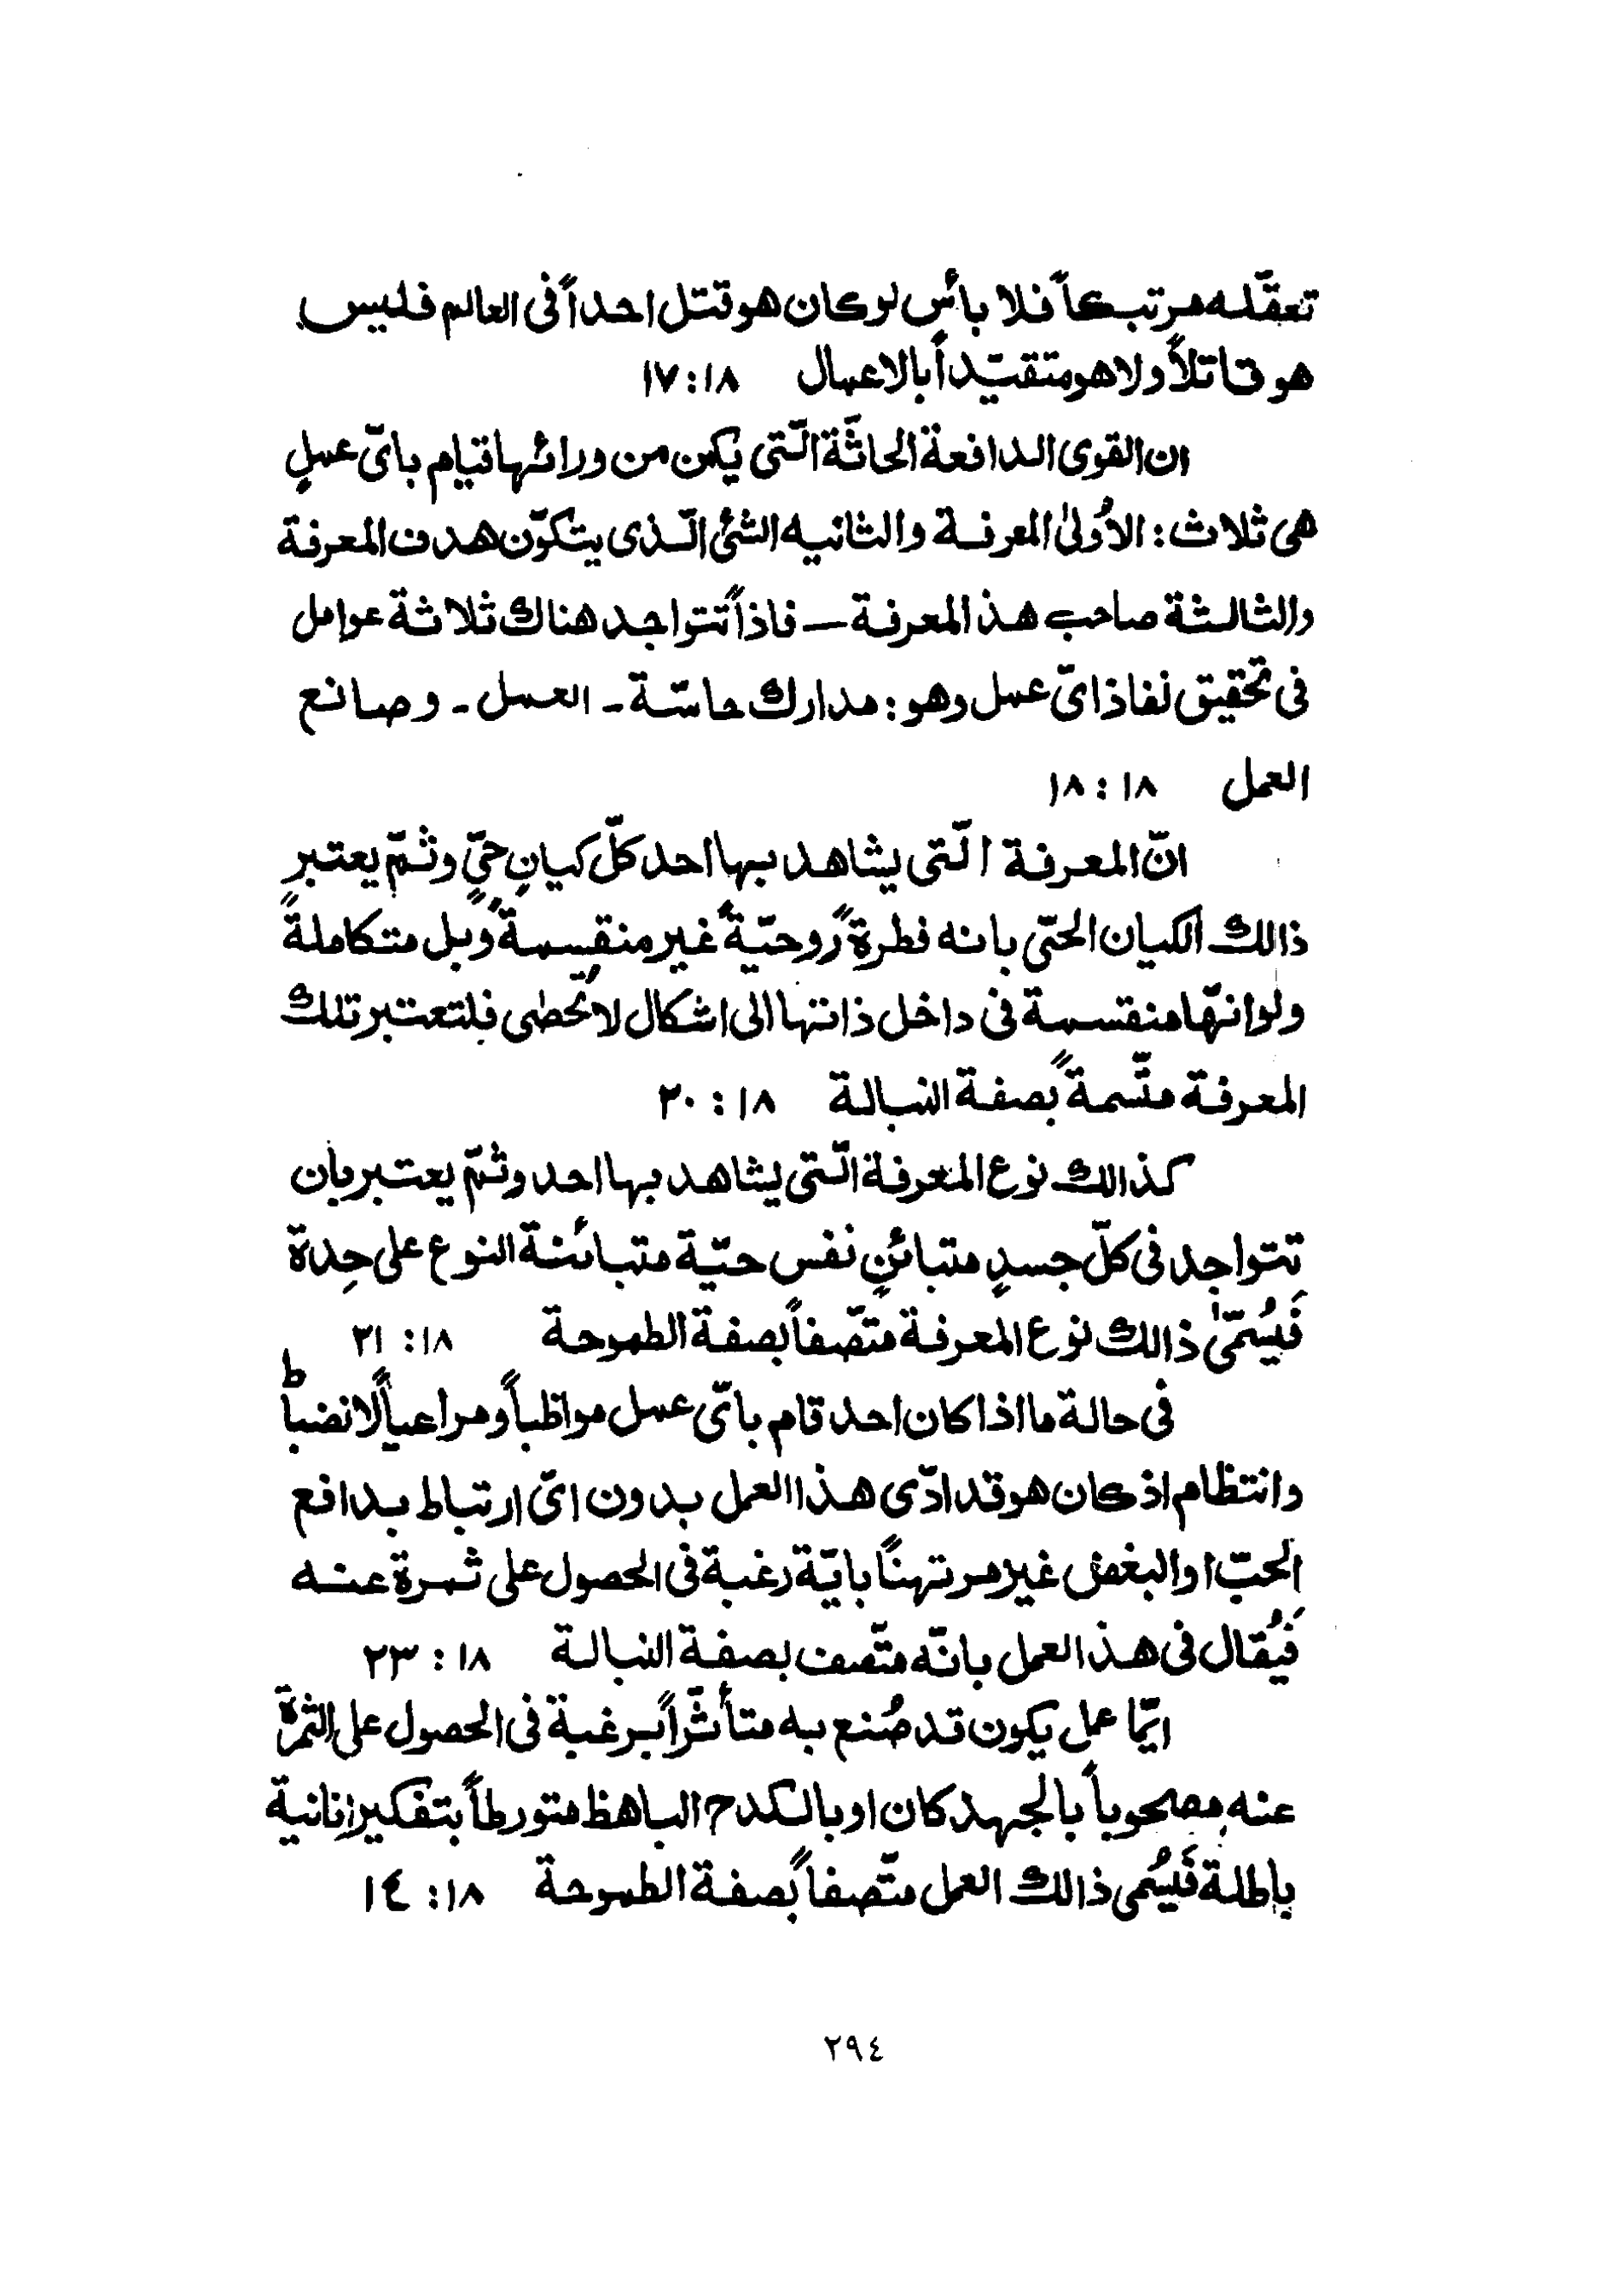 تعقّله مرتبكاً فلا بأس لو كان هو قتل احداً فى العالم فليس
هو قاتلاً ولا هو متقيّداً بالاعمال ١٨:١٧
ان القوى الدافعة الحاثّة الّتى يكمن من ورائها قيام باىّ عملٍ
هى ثلاث: الأولىٰ المعرفة والثانيه الشئ الّذى يتكوّن هدف المعرفة
والثالثة صاحب هذ المعرفة – فاذاً تتواجد هناك ثلاثة عوامل
فى تحقيق نفاذ اىّ عمل وهو: مدارك حاسّة - العمل - وصانع
العمل ١٨:١٨
انّ المعرفة الّتى يشاهد بها احد كلّ كيانٍ حىّ وثمّ يعتبر
ذالك الكيان الحىّ بانه فطرةً روحيّةً غير منقسمةً وبل متكاملةً
ولو انّها منقسمة فى داخل ذاتها الى اشكال لا تُحصٰى فلتعتبر تلك
المعرفة متّسمةً بصفة النبالة ١٨:٢٠
كذالك نوع المعرفة الّتى يشاهد بها احد وثمّ يعتبر بان
تتواجد فى كلّ جسدٍ متبائنٍ نفس حيّة متبائنة النوع على حِدة
فَيُسمّىٰ ذالك نوع المعرفة متّصفاً بصفة الطموحة ١٨:٢١
فى حالة ما اذا كان احد قام باىّ عمل مواظباً ومراعياً لانضباط
وانتظام اذ كان هو قد ادّى هذا العمل بدون اىّ ارتباط بدافع
الحبّ او البغض غير مرتهناً بايّة رغبة فى الحصول على ثمرة عنه
فَيُقال فى هذ العمل بانّه متّصف بصفة النبالة ١٨:٢٣
ايّما عمل يكون قد صُنع به متأثّراً برغبة فى الحصول على الثمرة
عنه مصحوباً بالجهد كان او بالكدح الباهظ متورطاً بتفكير انانية
باطلة فَيُسمى ذالك العمل متّصفاً بصفة الطموحة ١٨:١٤
٢٩٤